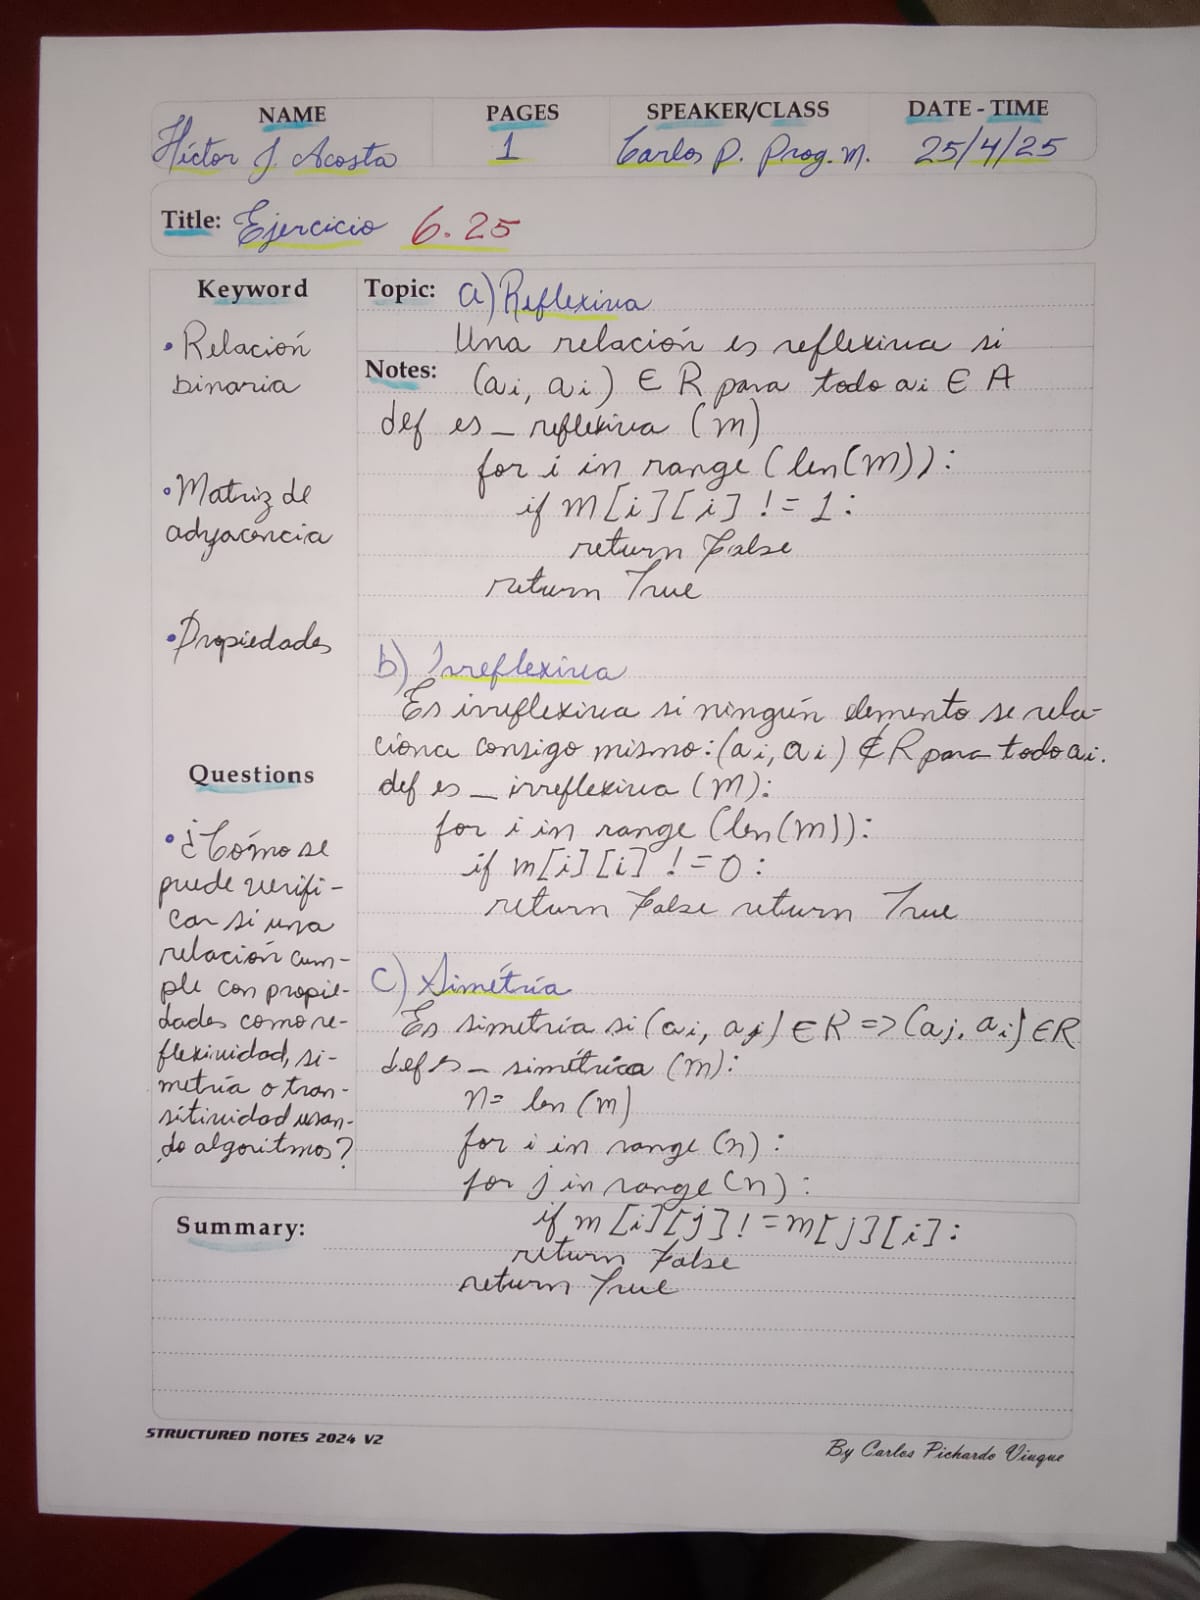 NAME PAGES SPEAKER/CLASS DATE - TIME
Híctor J. Acosta 1 Carlos P. Prog. M. 25/4/25
Title: Ejercicio 6.25
Keyword
• Relación
binaria
• Matriz de
adyacencia
• Propiedades
Questions
• ¿Cómo se
puede verifi-
car si una
relación cum-
ple con propie-
dades como re-
flexividad, si-
metría o tran-
sitividad usan-
do algoritmos?
Topic: a) Reflexiva
Una relación es reflexiva si
Notes: (ai, ai) ∈ R para todo ai ∈ A
def es_reflexiva (m)
for i in range (len(m)):
if m[i][i] != 1:
return False
return True
b) Irreflexiva
Es irreflexiva si ningún elemento se rela-
ciona consigo mismo: (ai, ai) ∉ R para todo ai.
def es_irreflexiva (m):
for i in range (len(m)):
if m[i][i] != 0:
return False return True
c) Simétría
Es simetría si (ai, aj) ∈ R => (aj, ai) ∈ R
def es_simétrica (m):
n= len (m)
for i in range (n):
for j in range (n):
if m [i][j] != m[j][i]:
return False
return True
Summary:
STRUCTURED NOTES 2024 V2
By Carlos Pichardo Viuque